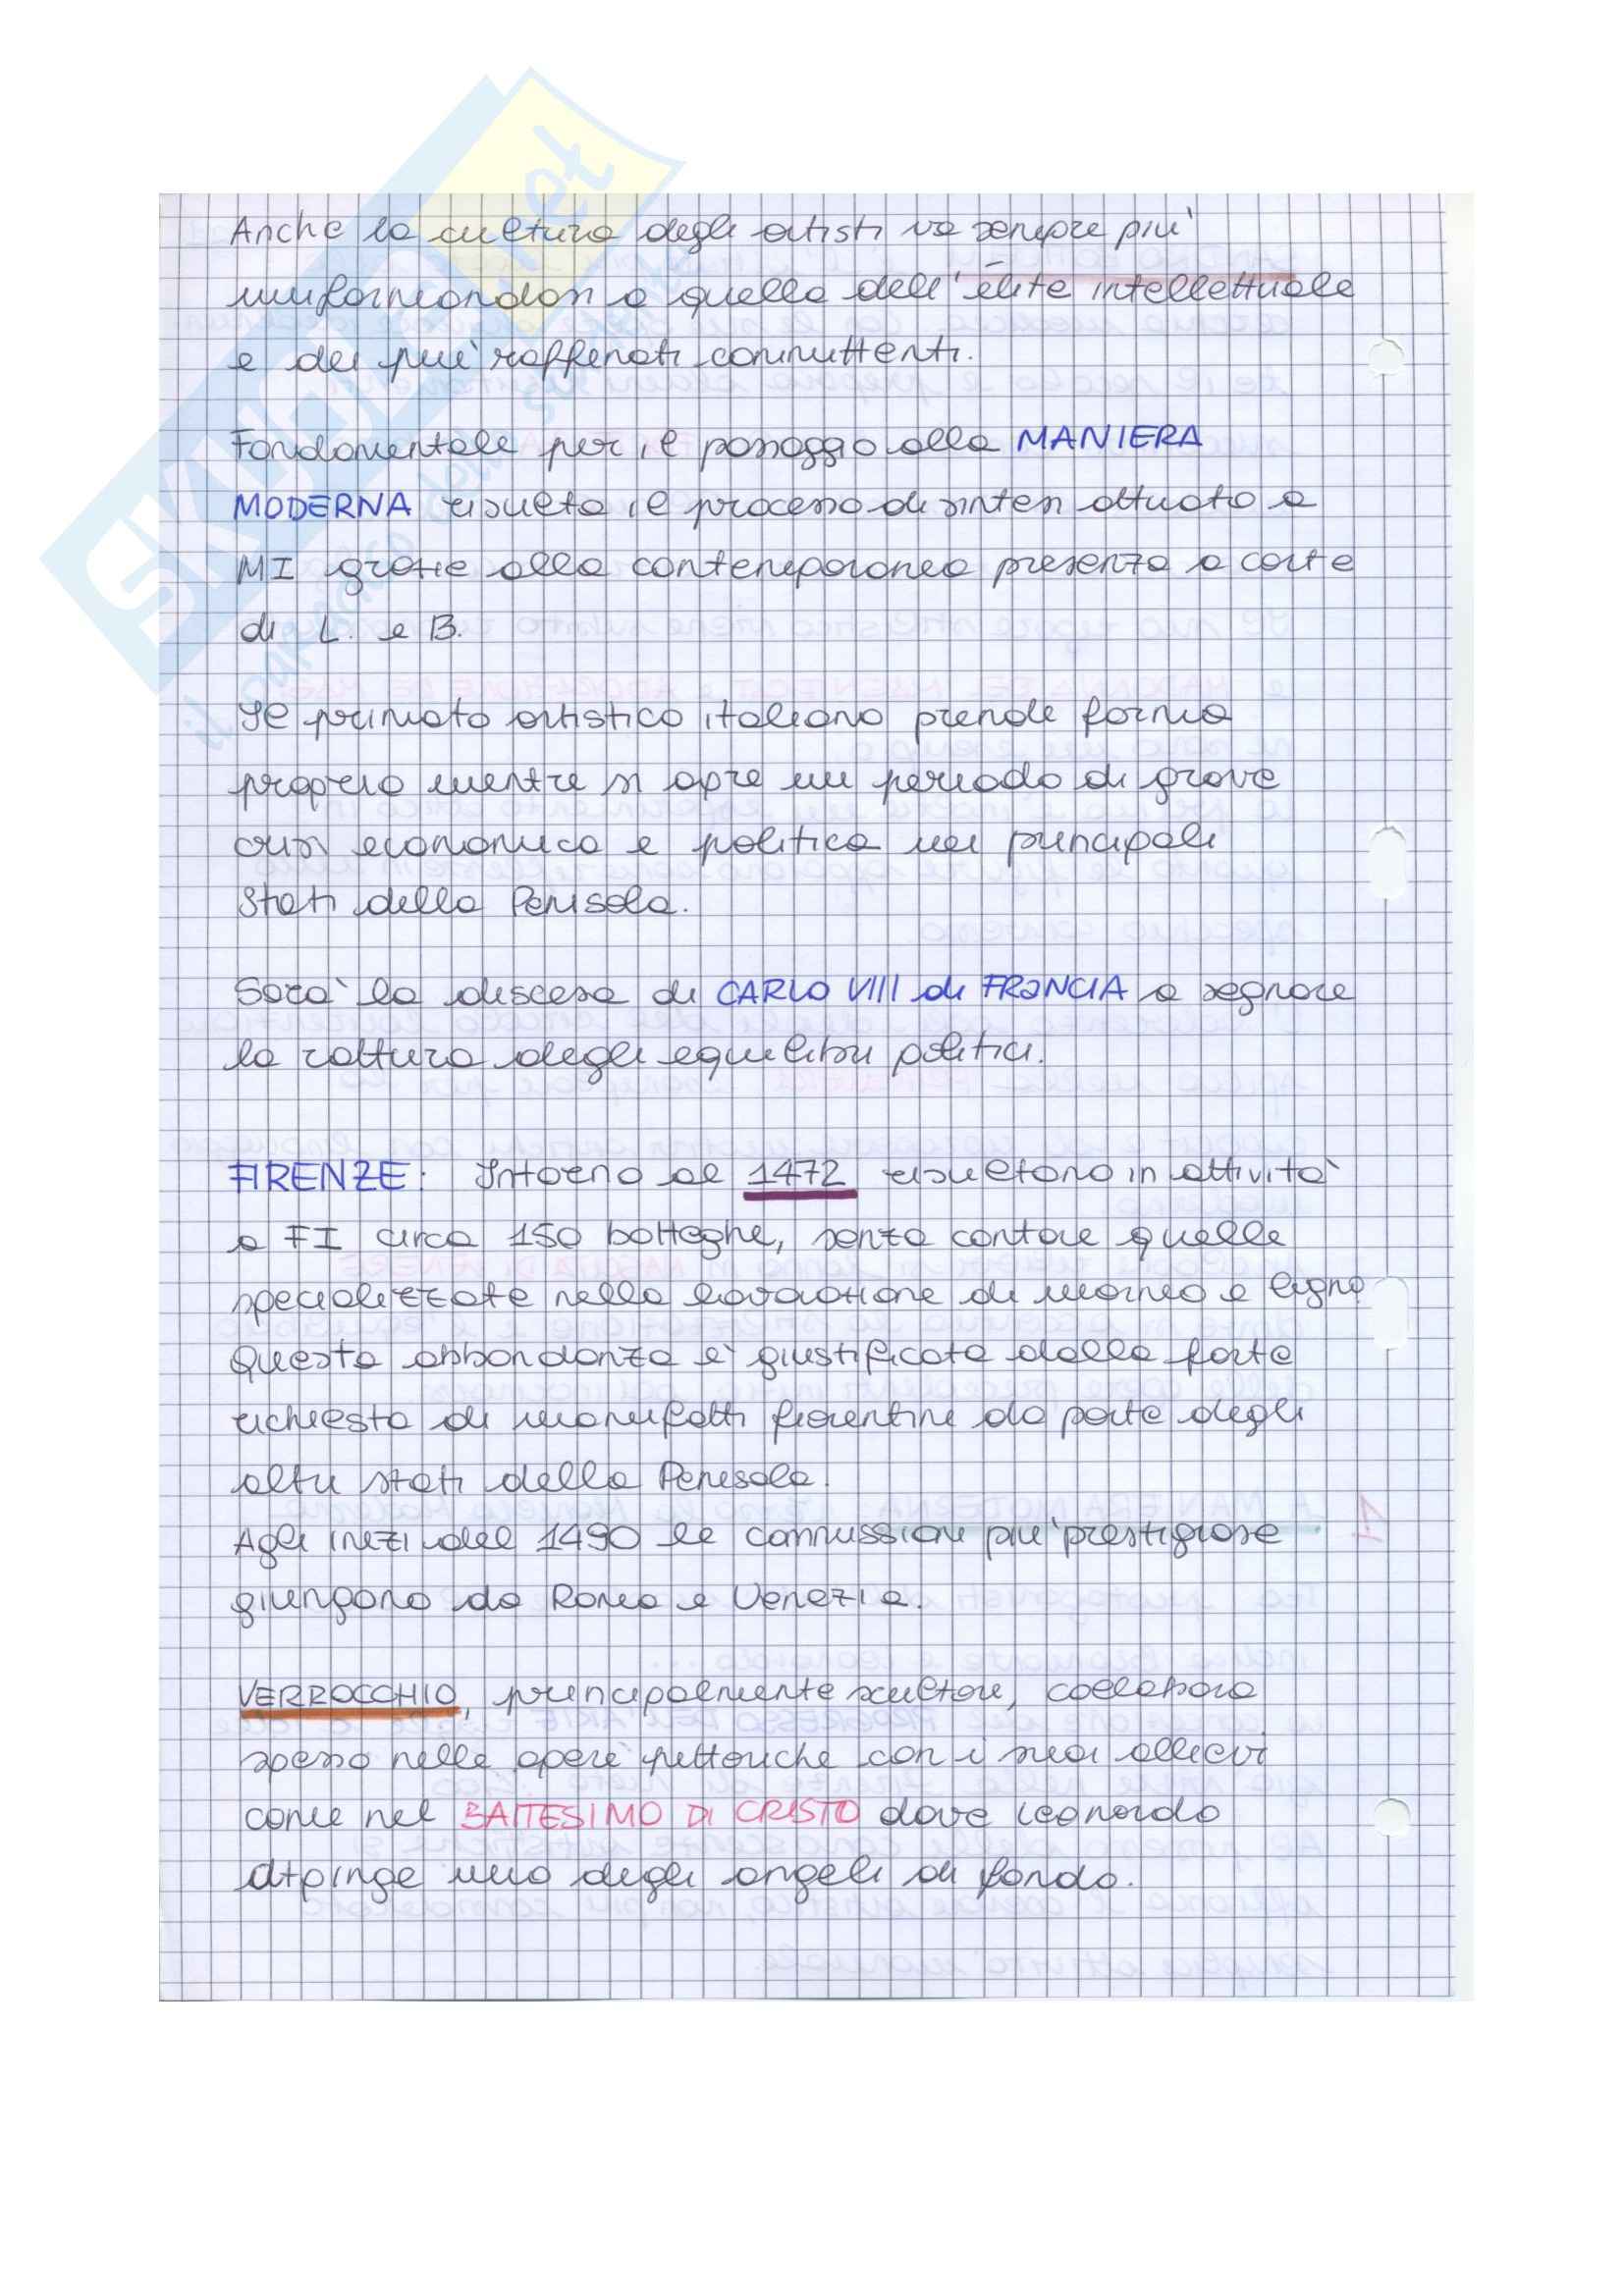 Anche la cultura degli artisti va sempre più
uniformandosi a quella dell'élite intellettuale
e dei più raffinati committenti.
Fondamentale per il passaggio alla MANIERA
MODERNA risulta il processo di sintesi attuato a
MI grazie alla contemporanea presenza a corte
di L. e B.
Il primato artistico italiano prende forma
proprio mentre si apre un periodo di grave
crisi economica e politica nei principali
Stati della Penisola.
Sarà la discesa di CARLO VIII di FRANCIA a segnare
la rottura degli equilibri politici.
FIRENZE: Intorno al 1472 risultano in attività
a FI circa 150 botteghe, senza contare quelle
specializzate nella lavorazione di marmo e legno
Questa abbondanza è giustificata dalla forte
richiesta di manufatti fiorentini da parte degli
altri stati della Penisola.
Agli inizi del 1490 le commissioni più prestigiose
giungono da Roma e Venezia.
VERROCCHIO, principalmente scultore, collabora
spesso nelle opere pittoriche con i suoi allievi
come nel BATTESIMO DI CRISTO dove Leonardo
dipinge uno degli angeli di fondo.